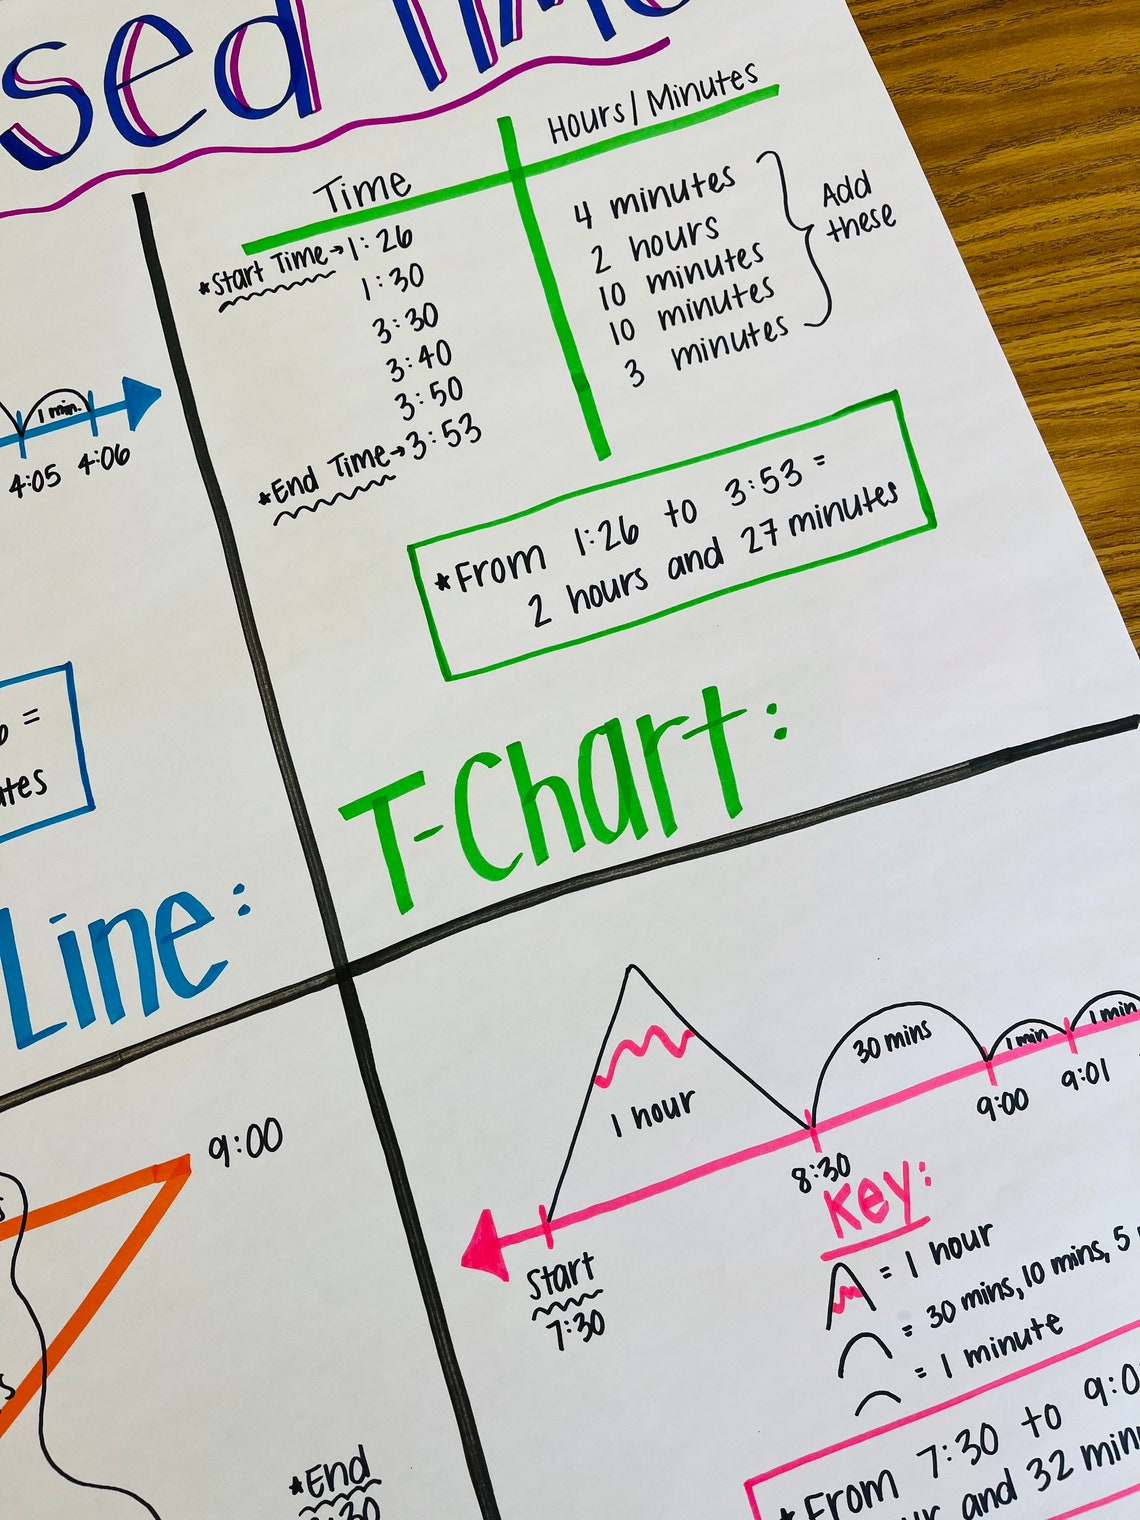 Time
Hours/Minutes
*Start Time→1:26
1:30
3:30
3:40
3:50
*End Time→3:53
4 minutes
2 hours
10 minutes
10 minutes
3 minutes
Add
these
*From 1:26 to 3:53 =
2 hours and 27 minutes
T-Chart:
1 min.
4:05 4:06
=
Line:
9:00
*End
1 hour
30 mins
1 min
1 min
Start
7:30
8:30
9:00
9:01
Key:
= 1 hour
= 30 mins, 10 mins, 5
= 1 minute
*From 7:30 to 9:0
and 32 min